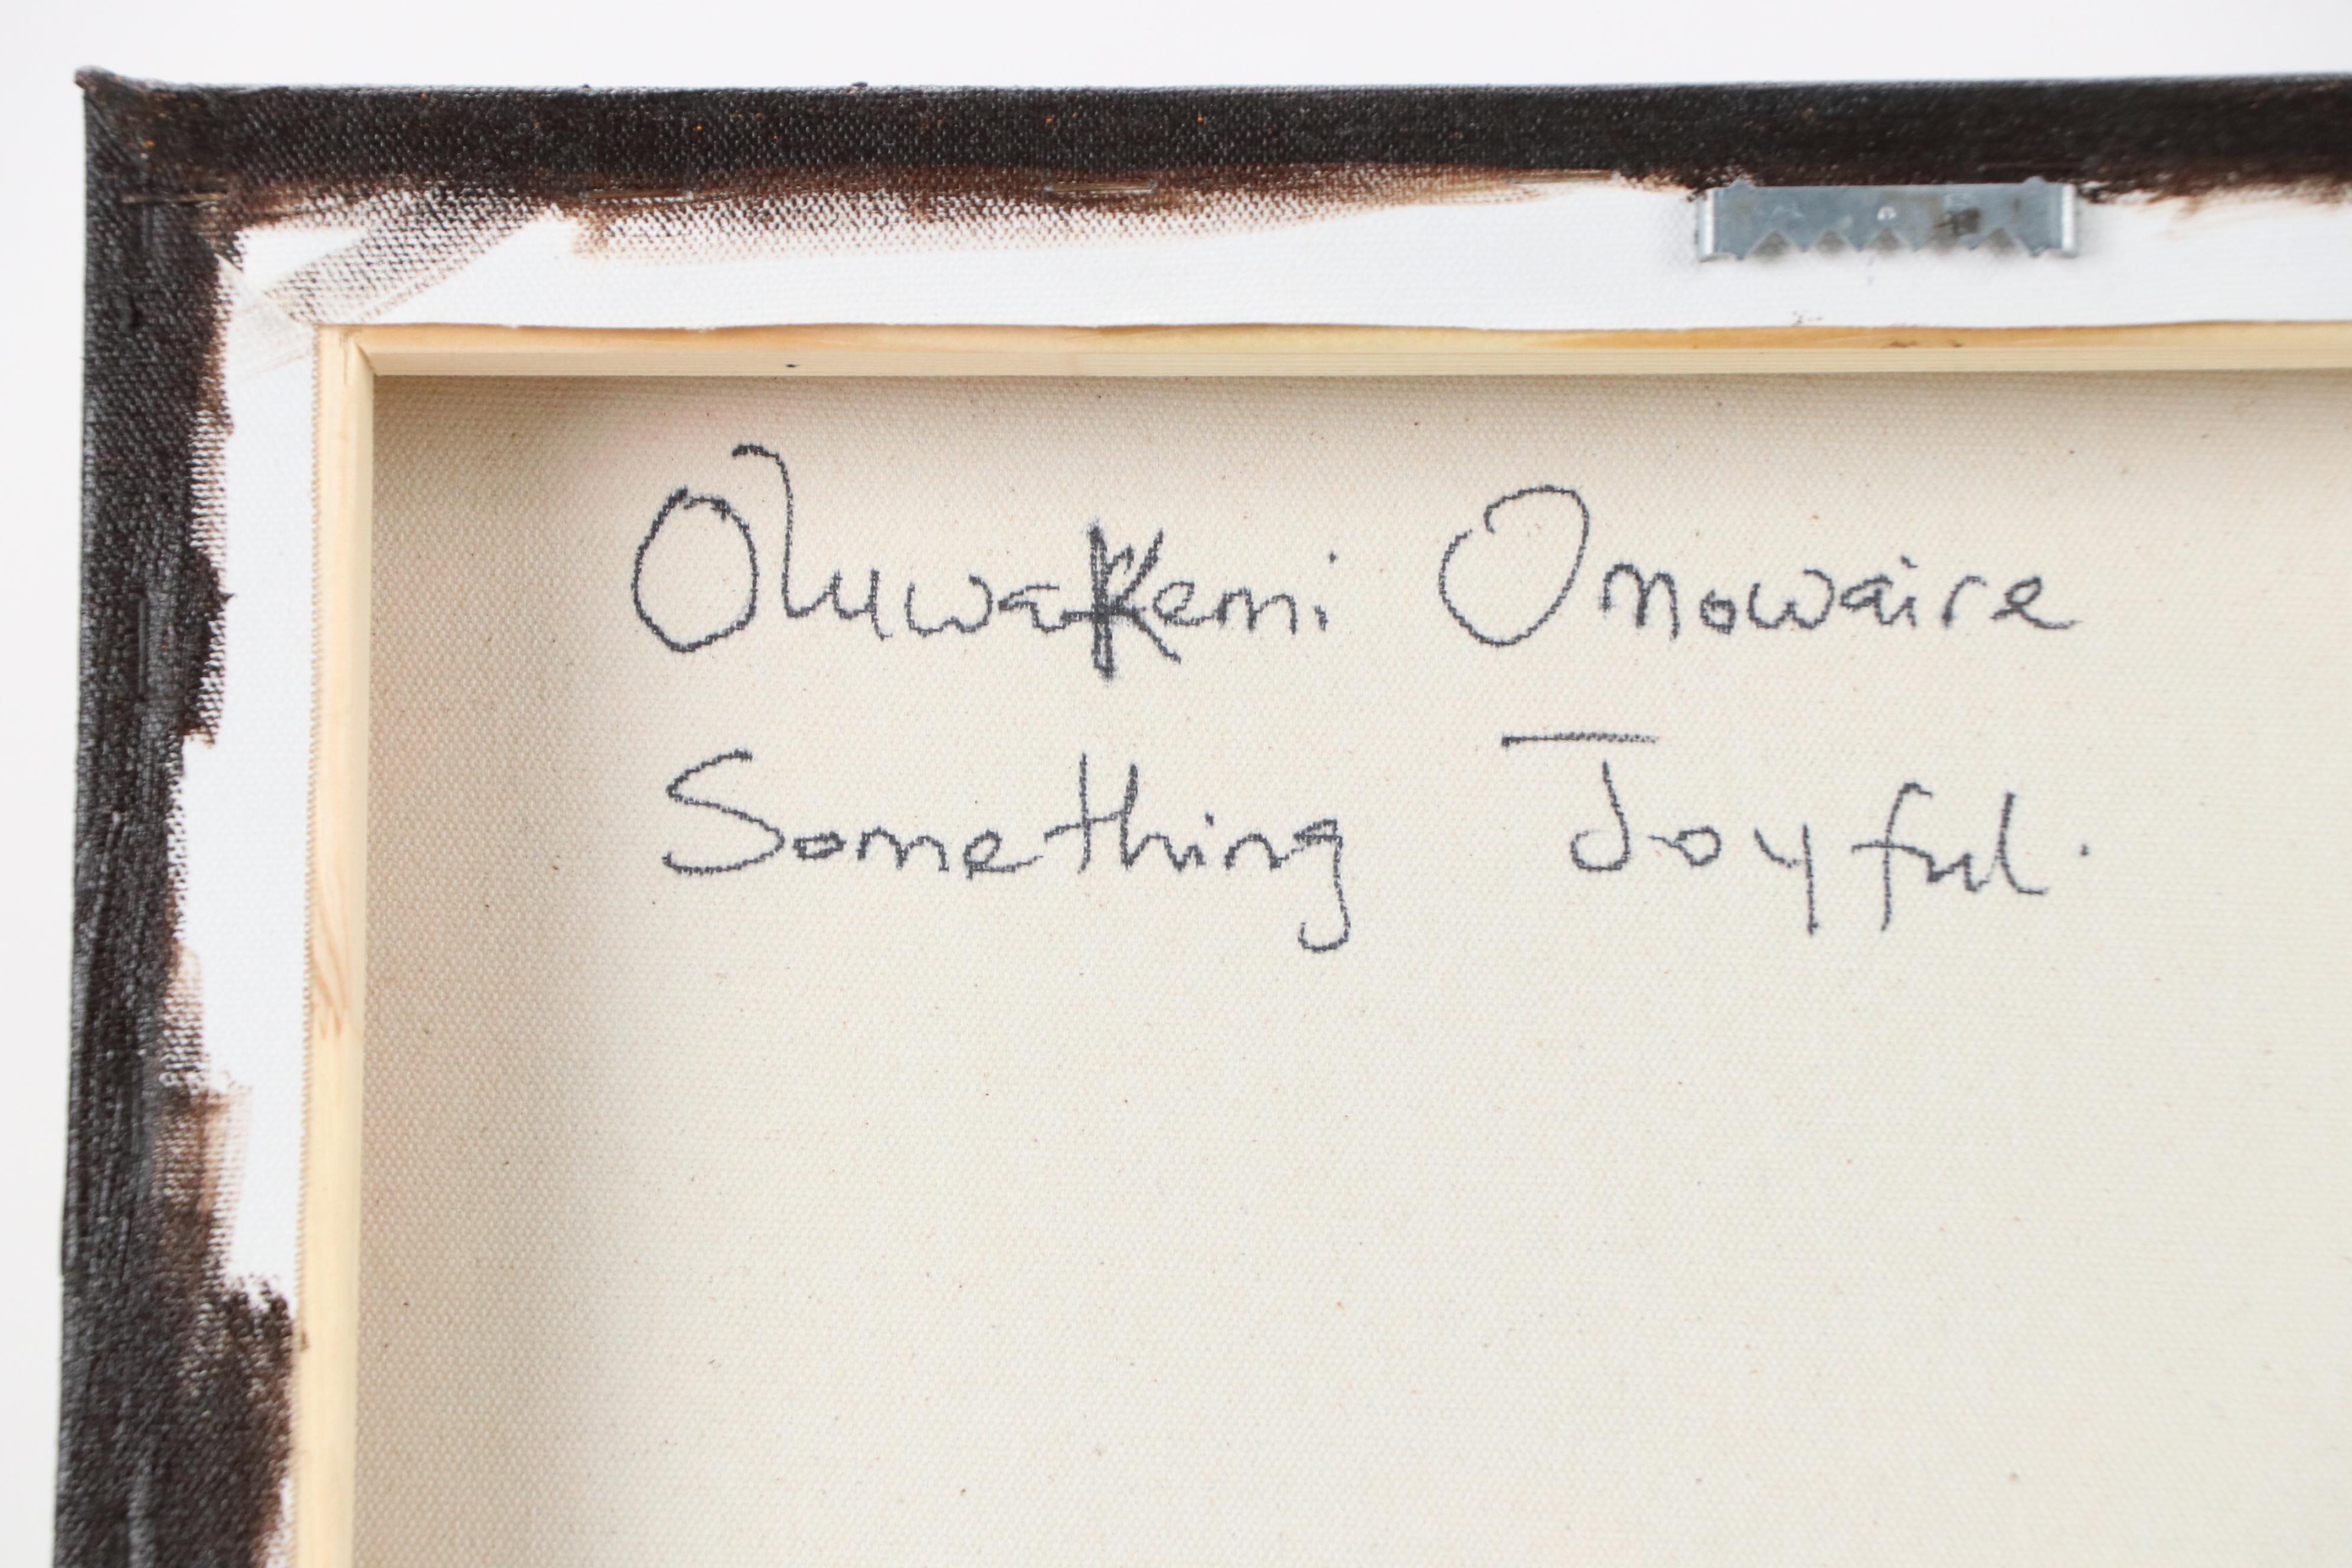 Oluwakemi Omowaire
Something Joyful.